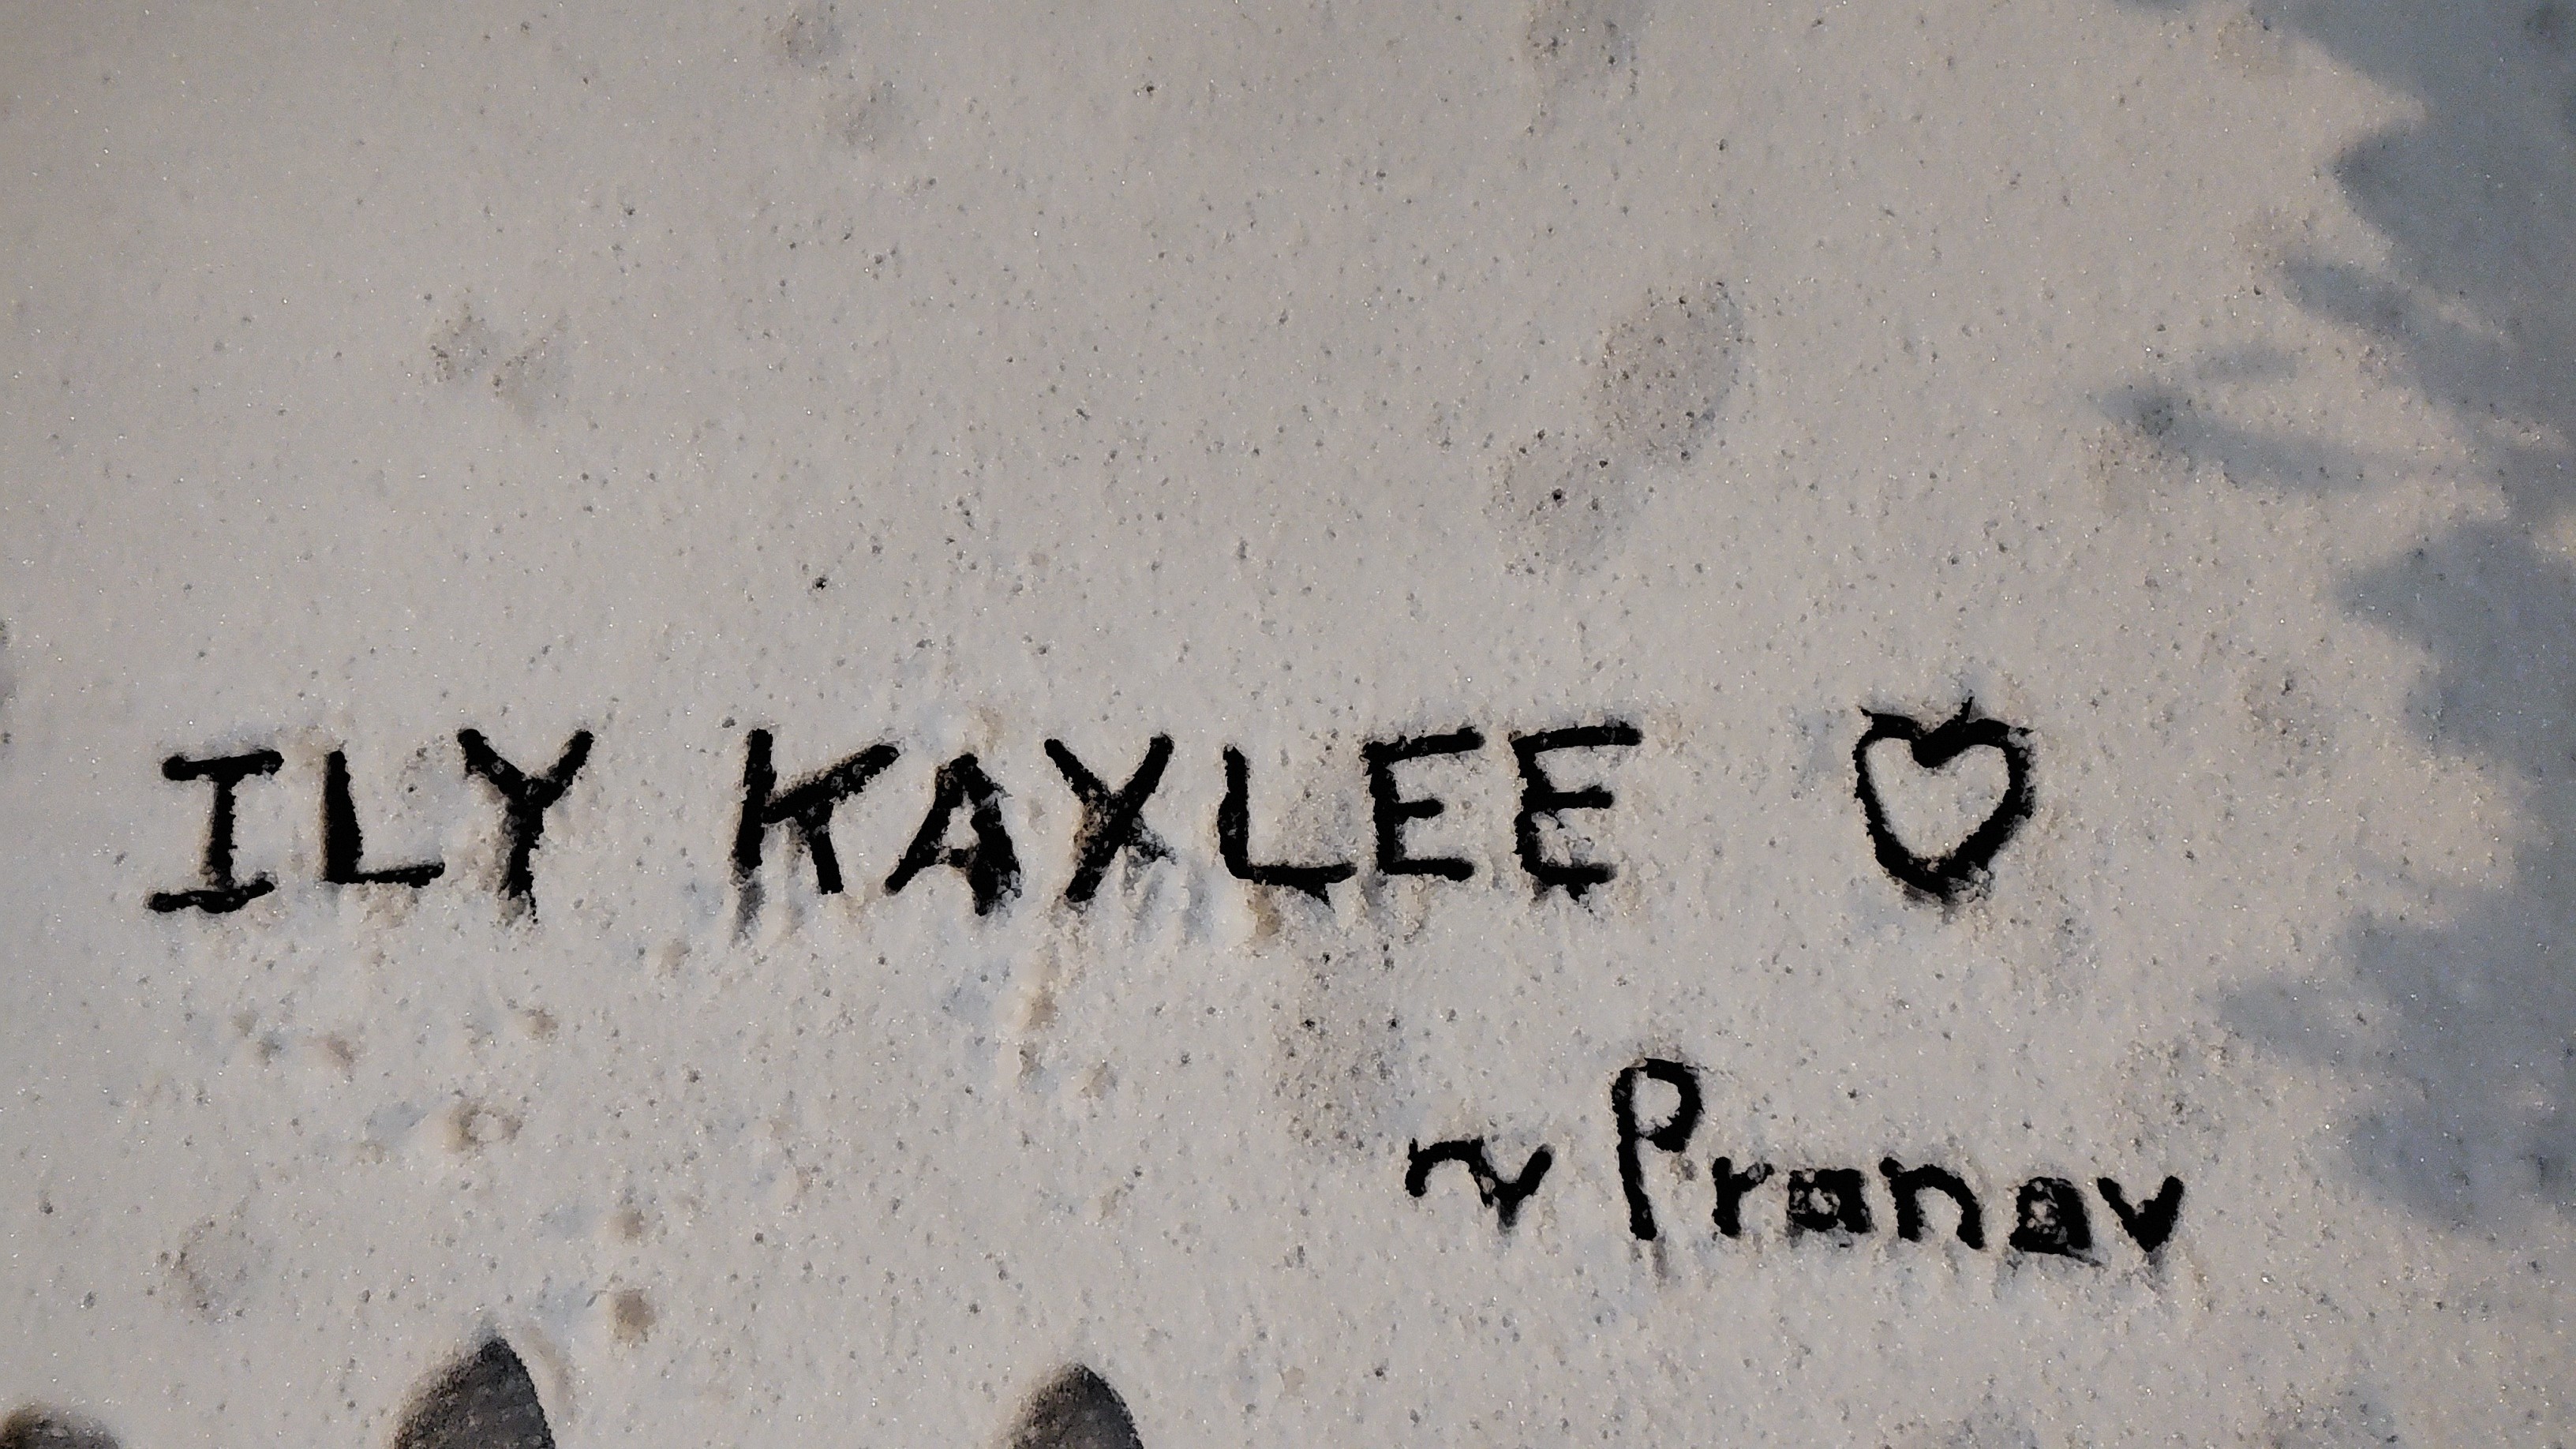 ILY KAYLEE ♡
~ Pranav